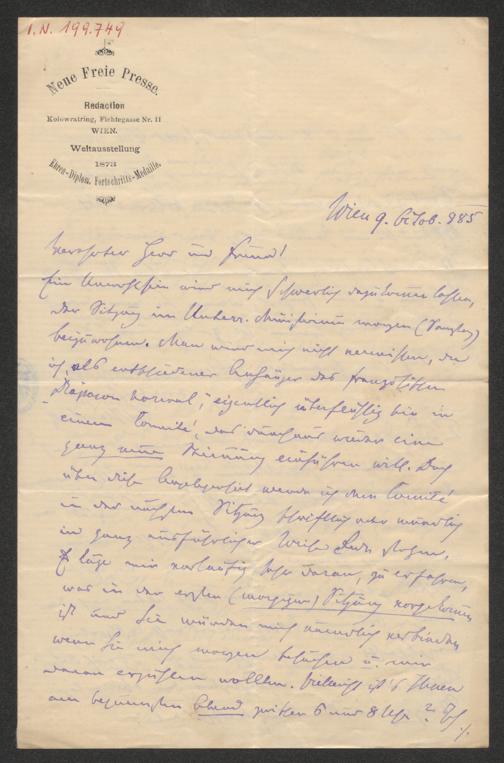 I.N. 199.749
Neue Freie Presse.
Redaction
Kolowratring, Fichtegasse Nr. 11
WIEN.
Weltausstellung
1873
Ehren-Diplom. Fortschritts-Medaille.
Wien 9. Octob. 885
Verehrter Herr und Freund!
Ein Unwohlsein wird mich schwerlich dazu kommen lassen,
der Sitzung im Unterr. Ministerium morgen (Samstag)
beizuwohnen. Man wird mich nicht vermissen, da
ich, als entschiedener Anhänger des französischen
„Diapason normal“, eigentlich überflüssig bin in
einem Comité, das durchaus wieder eine
ganz neue Stimmung einführen will. Doch
über diese Angelegenheit werde ich dem Comité
in der nächsten Sitzung schriftlich oder mündlich
in ganz ausführlicher Weise
Es läge mir vorläufig sehr daran, zu erfahren,
was in der ersten (morgigen) Sitzung vorgekommen
ist und Sie würden mich unendlich verbinden,
wenn Sie mich morgen besuchen u. mir
davon erzählen wollten. Vielleicht ist's Ihnen
am bequemsten Abend zwischen 6 und 8 Uhr? Ich
./.